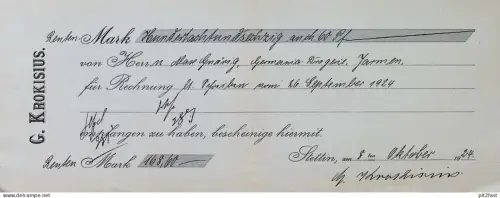 G. KROKISIUS.
Renten- Mark Hundertachtundsechzig auch 60 Pf
von Herrn Max Gnäing, Germania-Drogerie, Jarmen.
für Rechnung lt. Schreiben vom 26. September 1924
empfangen zu haben, bescheinige hiermit.
Renten Mark 168,60
Stettin, am 8ten Oktober 1924.
G. Krokisius